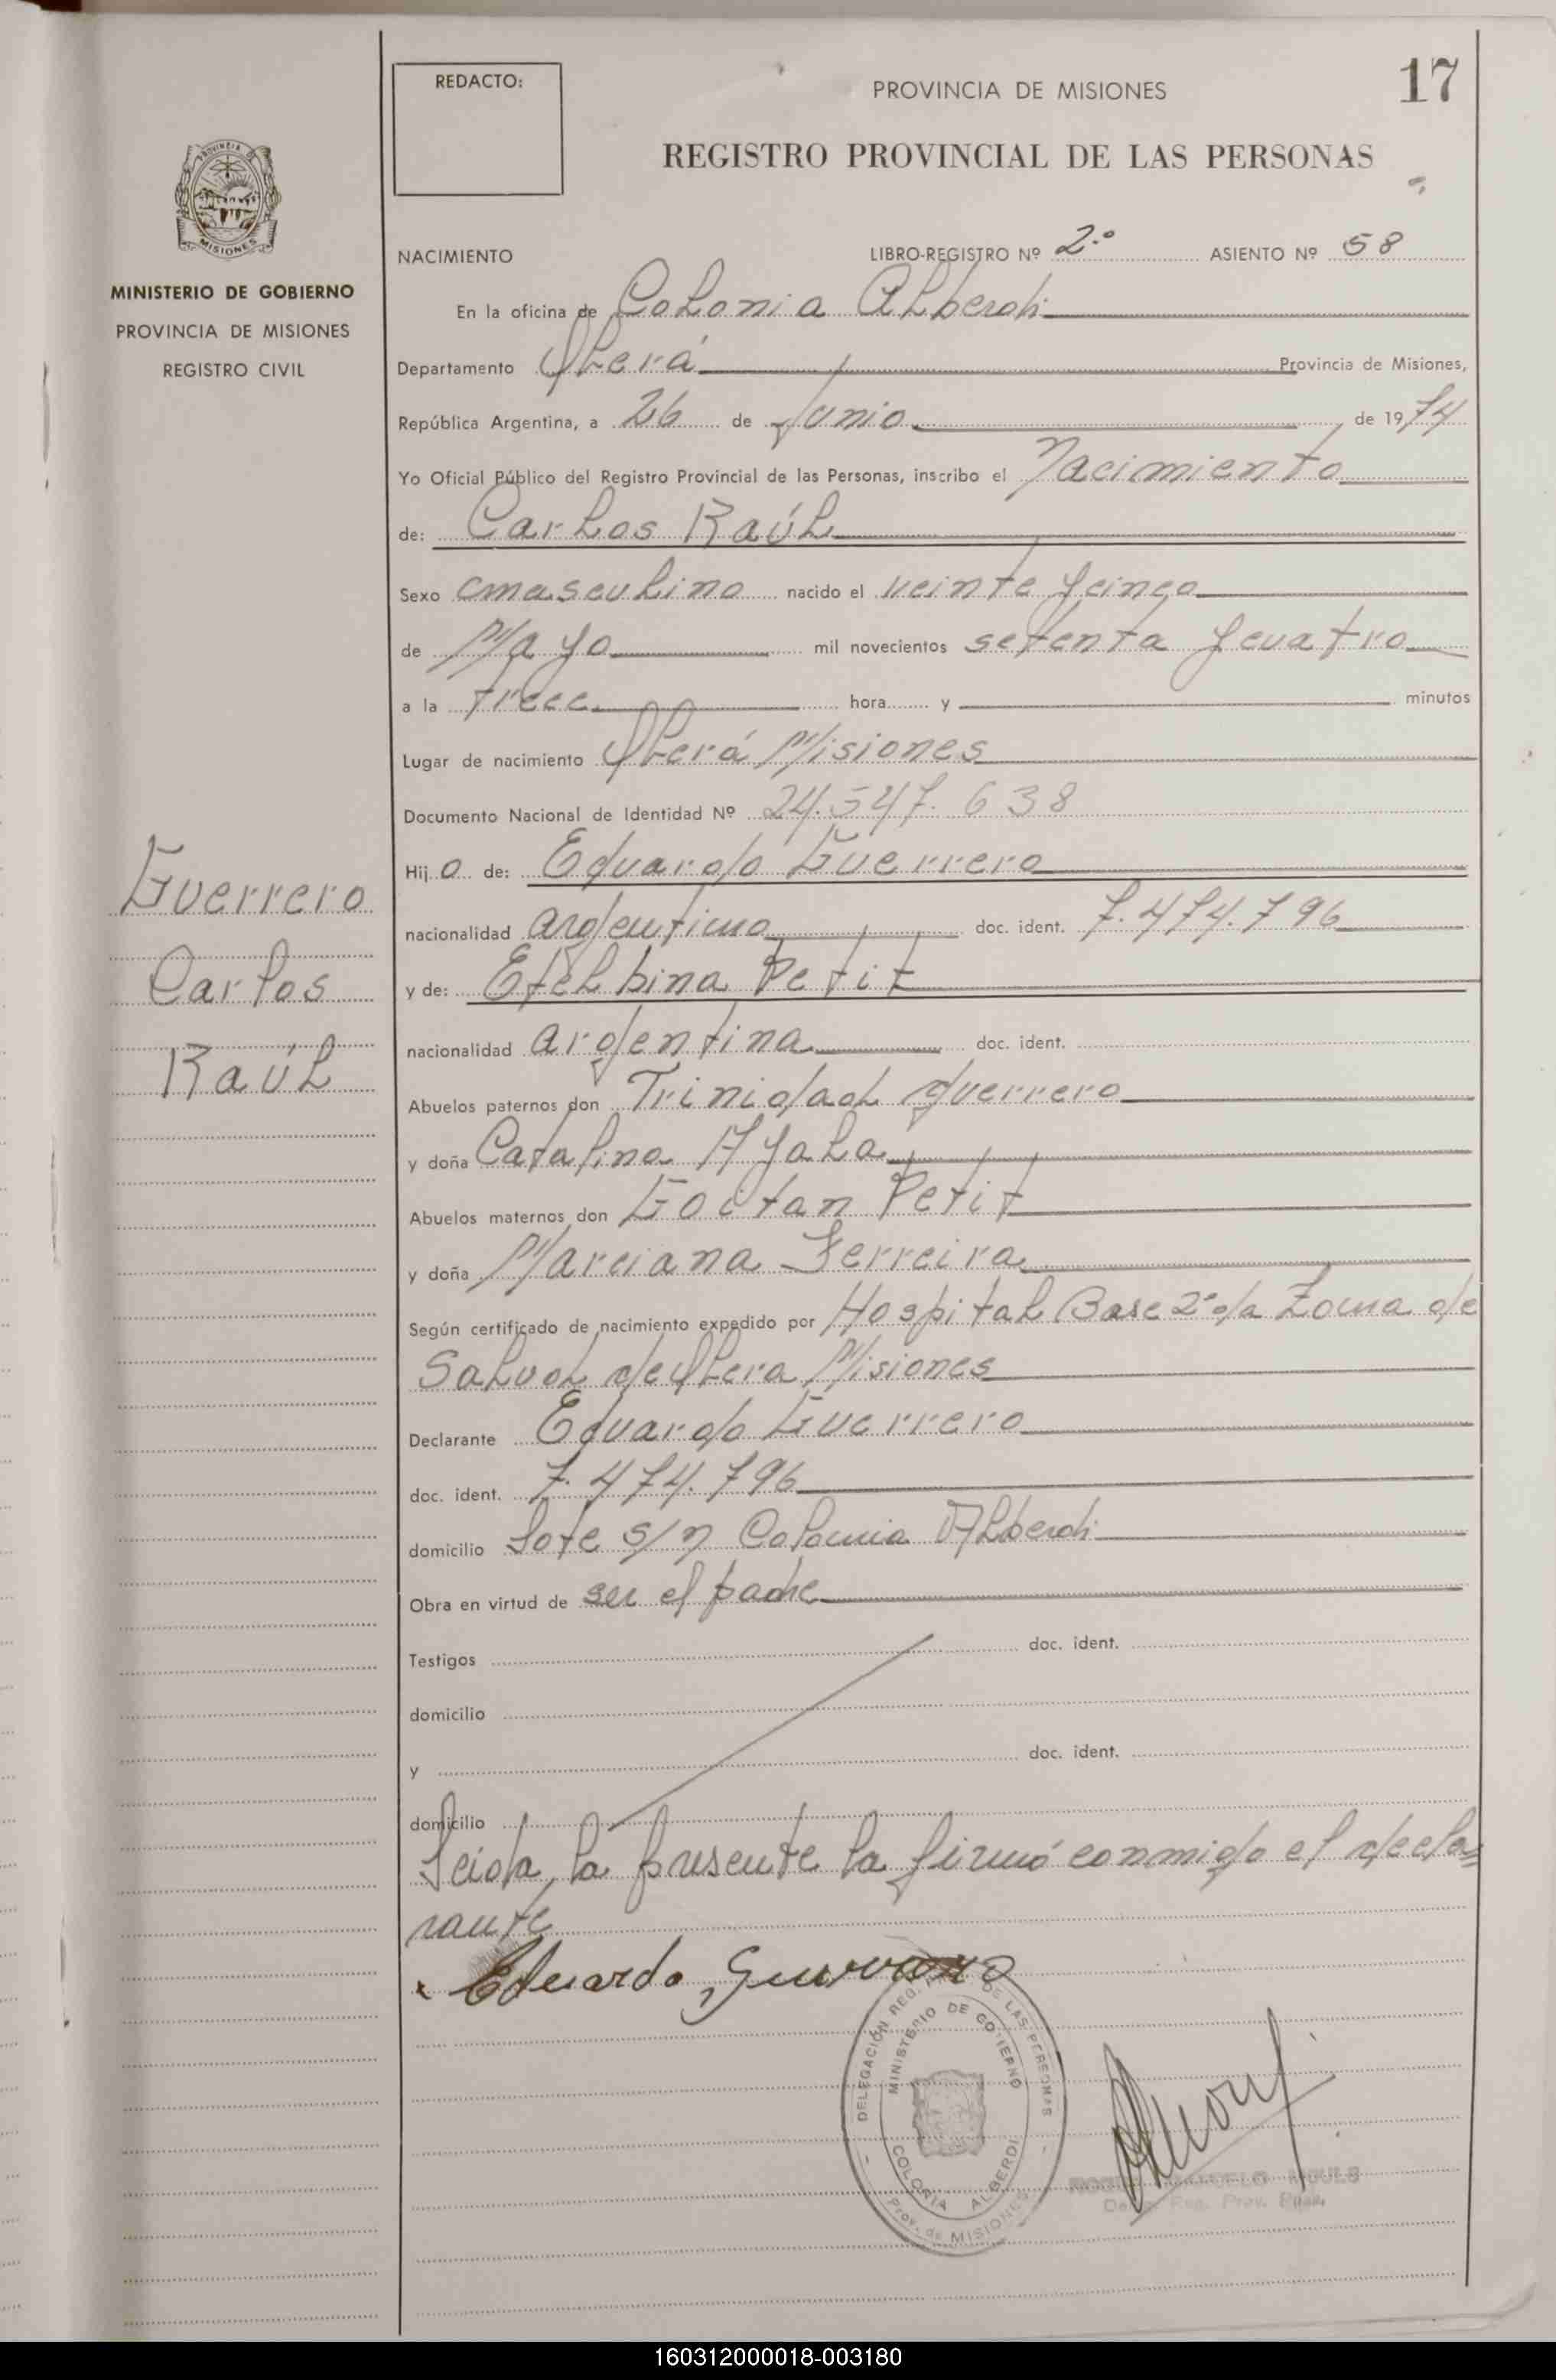 REDACTO:
PROVINCIA DE MISIONES
17
REGISTRO PROVINCIAL DE LAS PERSONAS
PROVINCIA DE
MISIONES
MINISTERIO DE GOBIERNO
PROVINCIA DE MISIONES
REGISTRO CIVIL
NACIMIENTO LIBRO-REGISTRO Nº 2.º ASIENTO Nº 58
En la oficina de Colonia Alberdi
Departamento Oberá Provincia de Misiones,
República Argentina, a 26 de Junio de 1974
Yo Oficial Público del Registro Provincial de las Personas, inscribo el Nacimiento
de: Carlos Raúl
Sexo masculino nacido el veinte y cinco
de Mayo mil novecientos setenta y cuatro
a la trece hora y minutos
Lugar de nacimiento Oberá Misiones
Documento Nacional de Identidad Nº 24.547.638
Hijo de: Eduardo Guerrero
nacionalidad argentino doc. ident. 7.474.796
y de: Etelbina Petit
nacionalidad argentina doc. ident.
Abuelos paternos don Trinidad Guerrero
y doña Catalina Ayala
Abuelos maternos don Goitan Petit
y doña Marciana Ferreira
Según certificado de nacimiento expedido por Hospital Base 2º da Zona de
Salud de Oberá Misiones
Declarante Eduardo Guerrero
doc. ident. 7.474.796
domicilio Lote s/n Colonia Alberdi
Obra en virtud de ser el padre
Testigos doc. ident.
domicilio
y doc. ident.
domicilio
Leida la presente la firmó conmigo el decla=
rante
Eduardo, Guerrero
Guerrero
Carlos
Raúl
DELEGACIÓN REG. DE LAS PERSONAS
MINISTERIO DE GOBIERNO
COLONIA ALBERDI
Prov. de MISIONES
Reg. Prov.
160312000018-003180